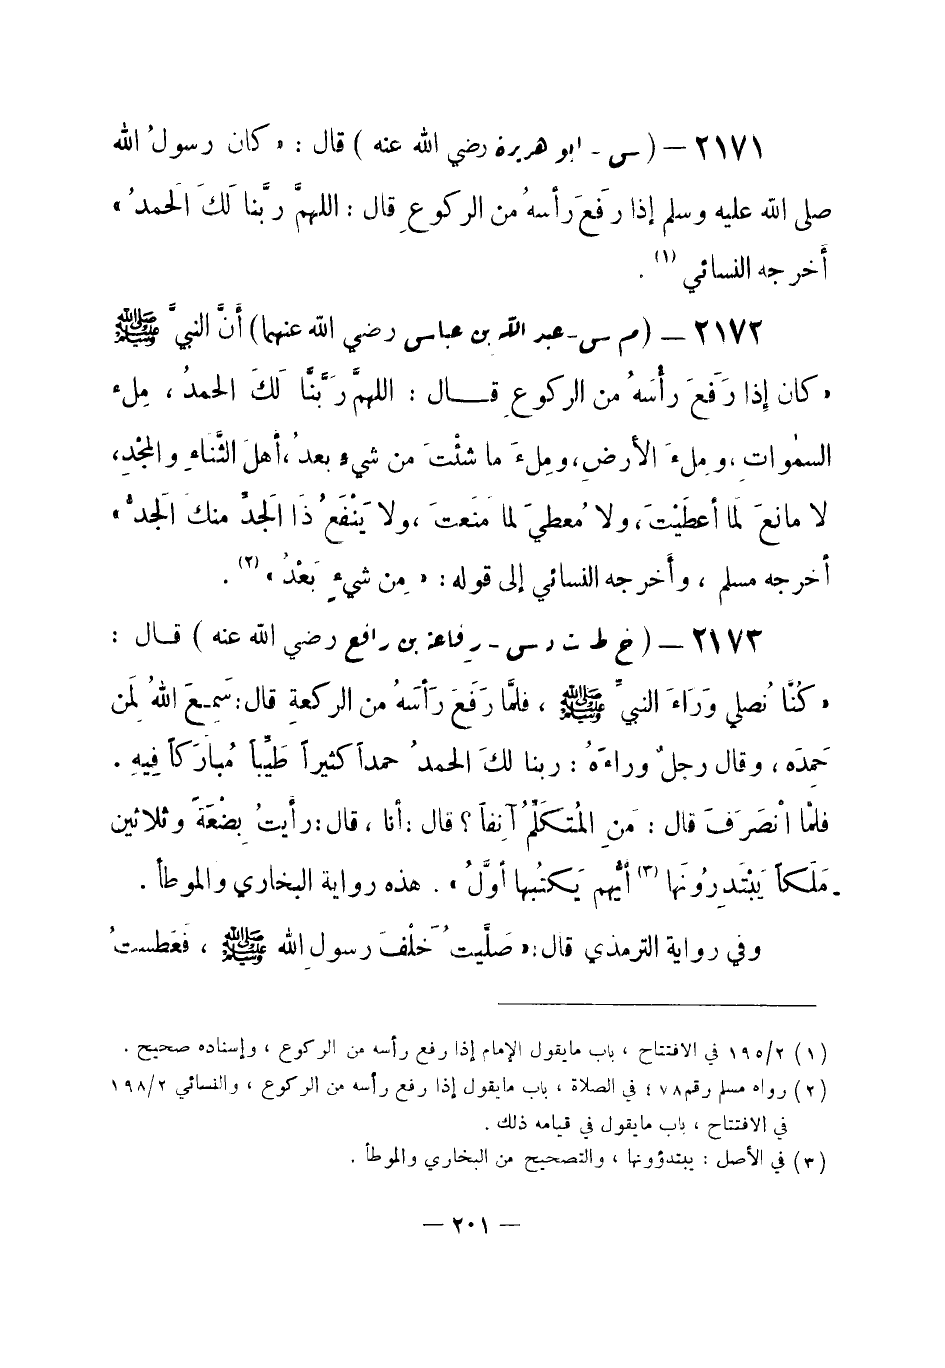 ٢١٧١ – ( س - ابو هريرة رضي الله عنه ) قال : « كان رسولُ الله
صلى الله عليه وسلم إذا رفَعَ رأسهُ من الركوعِ قال : اللهمَّ ربَّنا لَكَ الحمدُ »
أخرجه النسائي (١) .
٢١٧٢ – ( م س - عبد الله بن عباس رضي الله عنهما ) أنَّ النبيَّ ﷺ
« كان إذا رَفَعَ رأْسَهُ من الركوعِ قـــال : اللهمَّ رَبَّنَّا لَكَ الحمدُ ، مِلء
السمٰوات ، ومِلءَ الأرضِ ، ومِلءَ ما شئْتَ من شيء بعدُ ، أهلَ الثَّناءِ والمجْدِ ،
لا مانعَ لَما أعطَيْتَ ، ولا مُعطيَ لما مَنَعتَ ، ولا يَنْفَعُ ذَا الجَدِّ منكَ الجَدُّ »
أخرجه مسلم ، وأخرجه النسائي إلى قوله : « مِن شيءٍ بَعْدُ » (٢) .
٢١٧٣ – ( خ ط ت د س - رفاعة بن رافع رضي الله عنه ) قــال :
« كُنَّا نُصلي وَرَاءَ النبيِّ ﷺ ، فلمَّا رَفَعَ رَأسَهُ من الركعةِ قال : سَمِعَ اللهُ لِمَن
حَمِدَه ، وقال رجلٌ وراءَهُ : ربنا لكَ الحمدُ حمداً كثيراً طَيِّباً مُبارَكاً فِيهِ .
فلمَّا انْصَرَفَ قال : مَنِ المُتكَلِّمُ آنِفاً ؟ قال : أنا ، قال : رأيتُ بِضْعَةً وثلاثين
مَلَكاً يَبْتَدِرُونَها (٣) أيُّهم يَكتُبها أوَّلُ » . هذه رواية البخاري والموطأ .
وفي رواية الترمذي قال : « صَلَّيتُ خَلْفَ رسولِ الله ﷺ ، فَعَطستُ
(١) ١٩٥/٢ في الافتتاح ، باب مايقول الإمام إذا رفع رأسه من الركوع ، وإسناده صحيح .
(٢) رواه مسلم رقم ٤٧٨ في الصلاة ، باب مايقول إذا رفع رأسه من الركوع ، والنسائي ١٩٨/٢
في الافتتاح ، باب مايقول في قيامه ذلك .
(٣) في الأصل : يبتدؤونها ، والتصحيح من البخاري والموطأ .
– ٢٠١ –